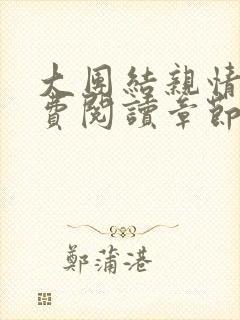 大團結親情
費閱讀章節
鄭蒲港